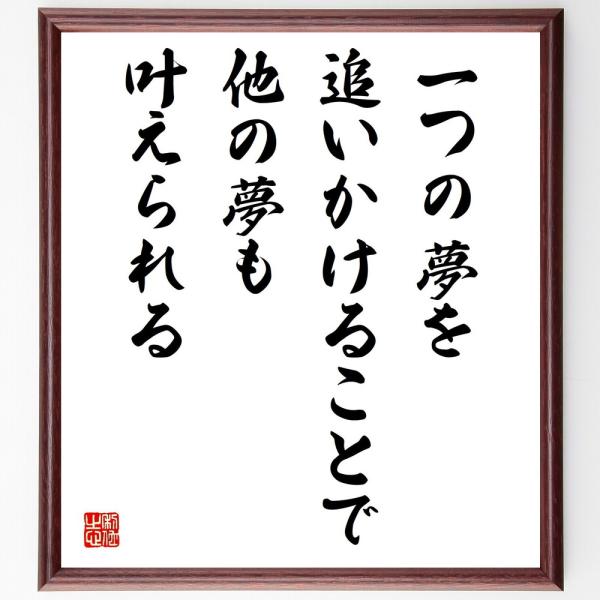 一つの夢を
追いかけることで
他の夢も
叶えられる